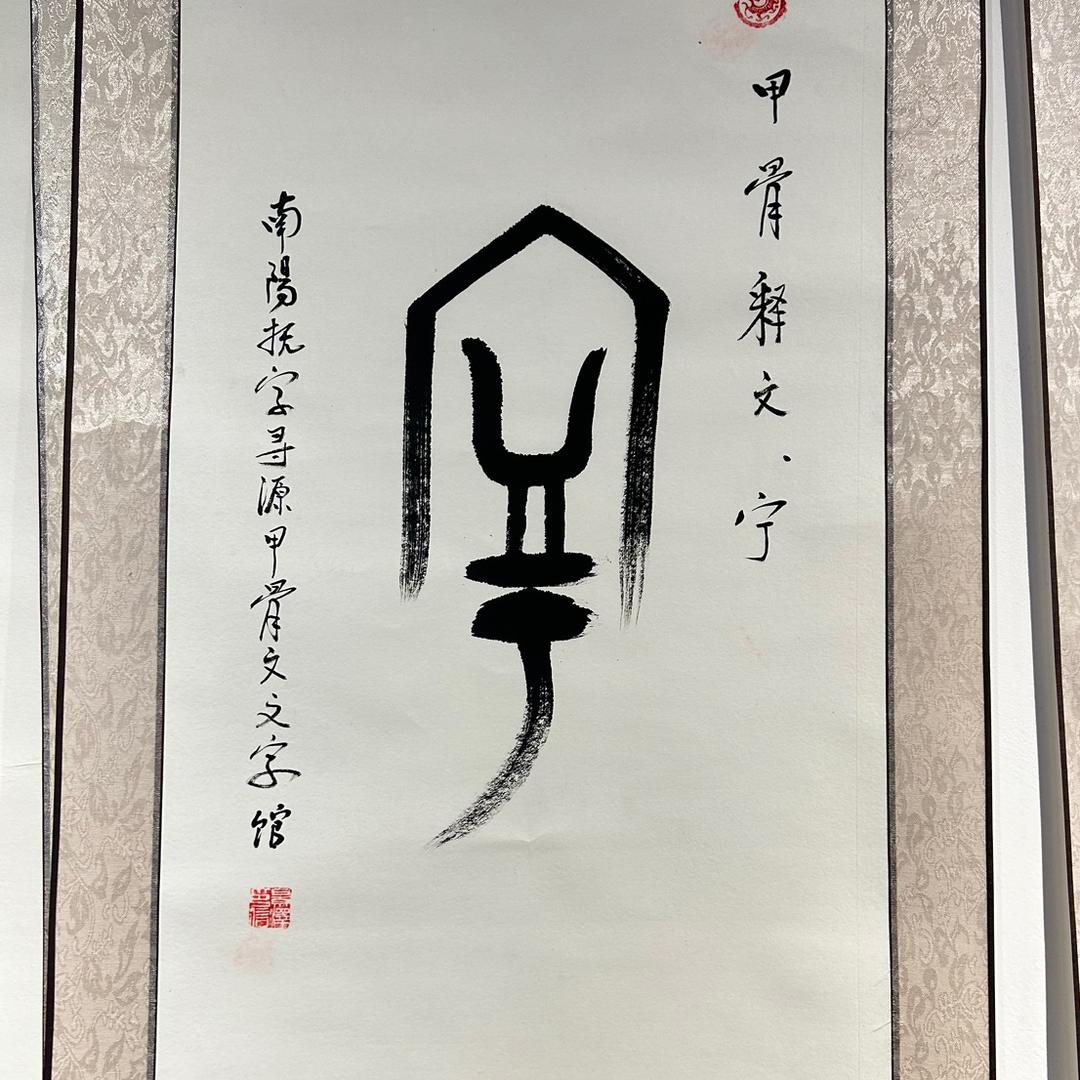 甲骨释文、宁
宁
南陽抚字寻源甲骨文文字馆